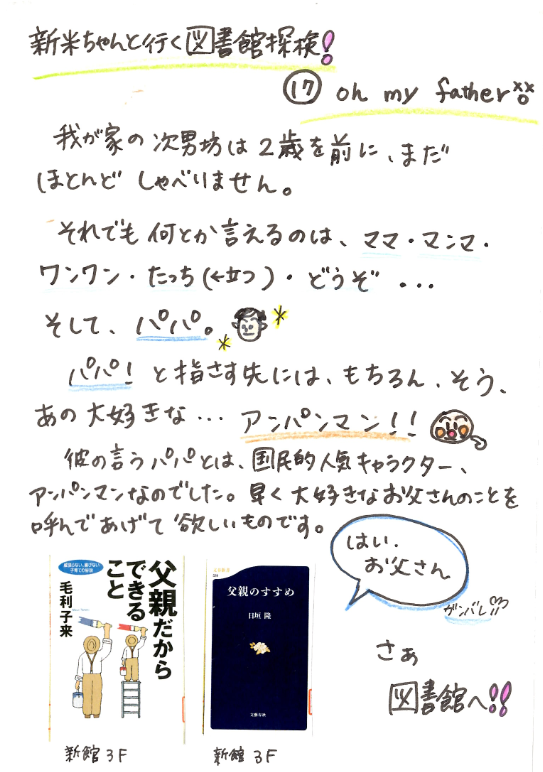 新米ちゃんと行く図書館探検!
⑰ oh my father
我が家の次男坊は2歳を前に、まだ
ほとんど しゃべりません。
それでも 何とか言えるのは、ママ・マンマ・
ワンワン・たっち(←立つ)・どうぞ ・・・
そして、パパ。
パパ! と指さす先には、もちろん、そう、
あの大好きな・・・ アンパンマン!!
彼の言うパパとは、国民的人気キャラクター、
アンパンマンなのでした。早く大好きなお父さんのことを
呼んであげて欲しいものです。
はい、
お父さん
ガンバレ!!
父親だから
できる
こと
毛利子来
父親のすすめ
日垣 隆
文藝春秋
新館 3F
新館 3F
さあ
図書館へ!!